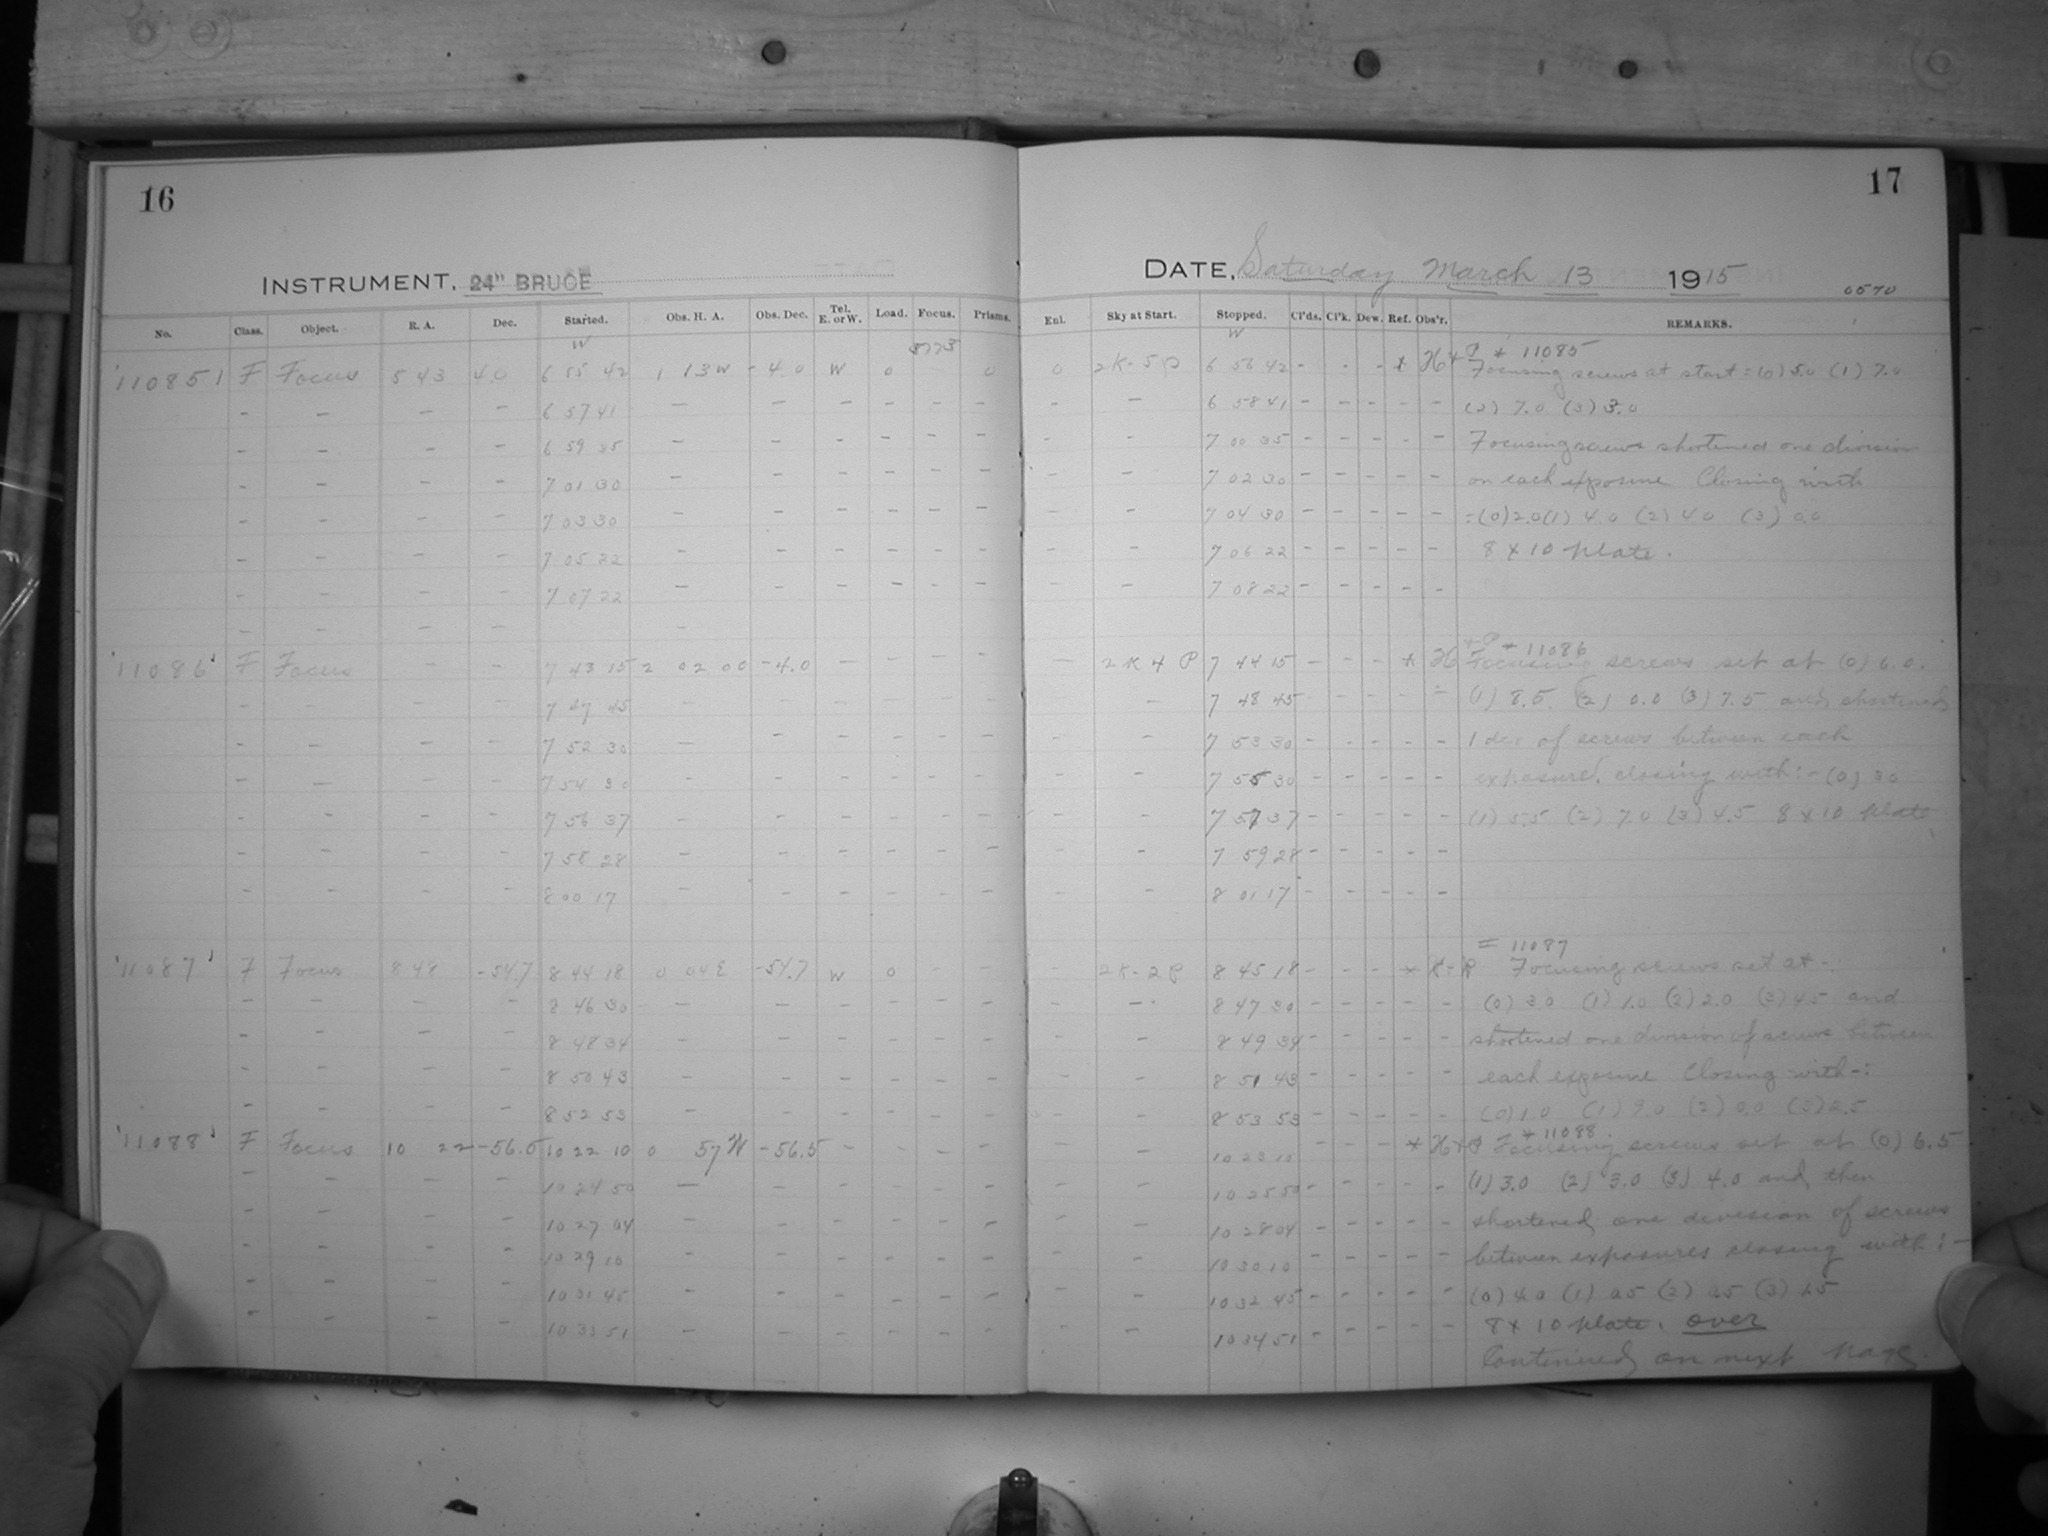 16
INSTRUMENT, 24" BRUCE
No. Class. Object. R. A. Dec. Started. Obs. H. A. Obs. Dec. Tel. E. or W. Load. Focus. Prisms.
W
11085 F Focus 5 43 4.0 6 55 42 1 13 W -4.0 W 0 0
- - - - 6 57 41 - - - - - -
- - - - 6 59 35 - - - - - -
- - - - 7 01 30 - - - - - -
- - - - 7 03 30 - - - - - -
- - - - 7 05 22 - - - - - -
- - - - 7 07 22 - - - - - -
- - - - -
'11086' F Focus - - 7 43 15 2 02 00 -4.0 - - - -
- - - - 7 47 45 - - - - - -
- - - - 7 52 30 - - - - - -
- - - - 7 54 30 - - - - - -
- - - - 7 56 37 - - - - - -
- - - - 7 58 28 - - - - - -
- - - - 8 00 17 - - - - - -
'11087' F Focus 8 48 -54.7 8 44 18 0 04 E -54.7 W 0 - -
- - - - 8 46 30 - - - - - -
- - - - 8 48 34 - - - - - -
- - - - 8 50 43 - - - - - -
- - - - 8 52 53 - - - - - -
'11088' F Focus 10 22 -56.5 10 22 10 0 57 W -56.5 - - - -
- - - - 10 24 50 - - - - - -
- - - - 10 27 04 - - - - - -
- - - - 10 29 10 - - - - - -
- - - - 10 31 45 - - - - - -
- - - - 10 33 51 - - - - - -
17
DATE, Saturday March 13 1915
0570
Enl. Sky at Start. Stopped. Cl'ds. Cl'k. Dew. Ref. Obs'r. REMARKS.
W
0 2K-5P 6 56 42 - - - * H+P * 11085
Focusing screws at start = (0) 5.0 (1) 7.0
- - 6 58 41 - - - - - (2) 7.0 (3) 3.0
- - 7 00 35 - - - - - Focusing screws shortened one division
- - 7 02 30 - - - - - on each exposure Closing with
- - 7 04 30 - - - - - =(0) 2.0 (1) 4.0 (2) 4.0 (3) 0.0
- - 7 06 22 - - - - - 8 x 10 plate.
- - 7 08 22 - - - - -
+P * 11086
- 2 K 4 P 7 44 15 - - - * H Focusing screws set at (0) 6.0.
- 7 48 45 - - - - - (1) 8.5 (2) 0.0 (3) 7.5 and shortened
- - 7 53 30 - - - - - 1 div of screws between each
- - 7 55 30 - - - - - exposure, closing with:- (0) 3.0
- - 7 57 37 - - - - - (1) 5.5 (2) 7.0 (3) 4.5 8 x 10 plate
- - 7 59 28 - - - - -
- - 8 01 17 - - - - -
= 11087
- 2K-2P 8 45 18 - - - * Focusing screws set at -:
- - 8 47 30 - - - - - (0) 3.0 (1) 1.0 (2) 2.0 (3) 4.5 and
- - 8 49 34 - - - - - shortened one division of screws between
- - 8 51 43 - - - - - each exposure Closing with -:
- - 8 53 53 - - - - - (0) 1.0 (1) 9.0 (2) 0.0 (3) 2.5
* 11088
- - 10 23 10 - - - * H+P Focusing screws set at (0) 6.5
- - 10 25 50 - - - - - (1) 3.0 (2) 3.0 (3) 4.0 and then
- - 10 28 04 - - - - - shortened one division of screws
- - 10 30 10 - - - - - between exposures closing with:-
- - 10 32 45 - - - - - (0) 4.0 (1) 0.5 (2) 0.5 (3) 1.5
- - 10 34 51 - - - - - 8 x 10 plate. over
Continued on next page.